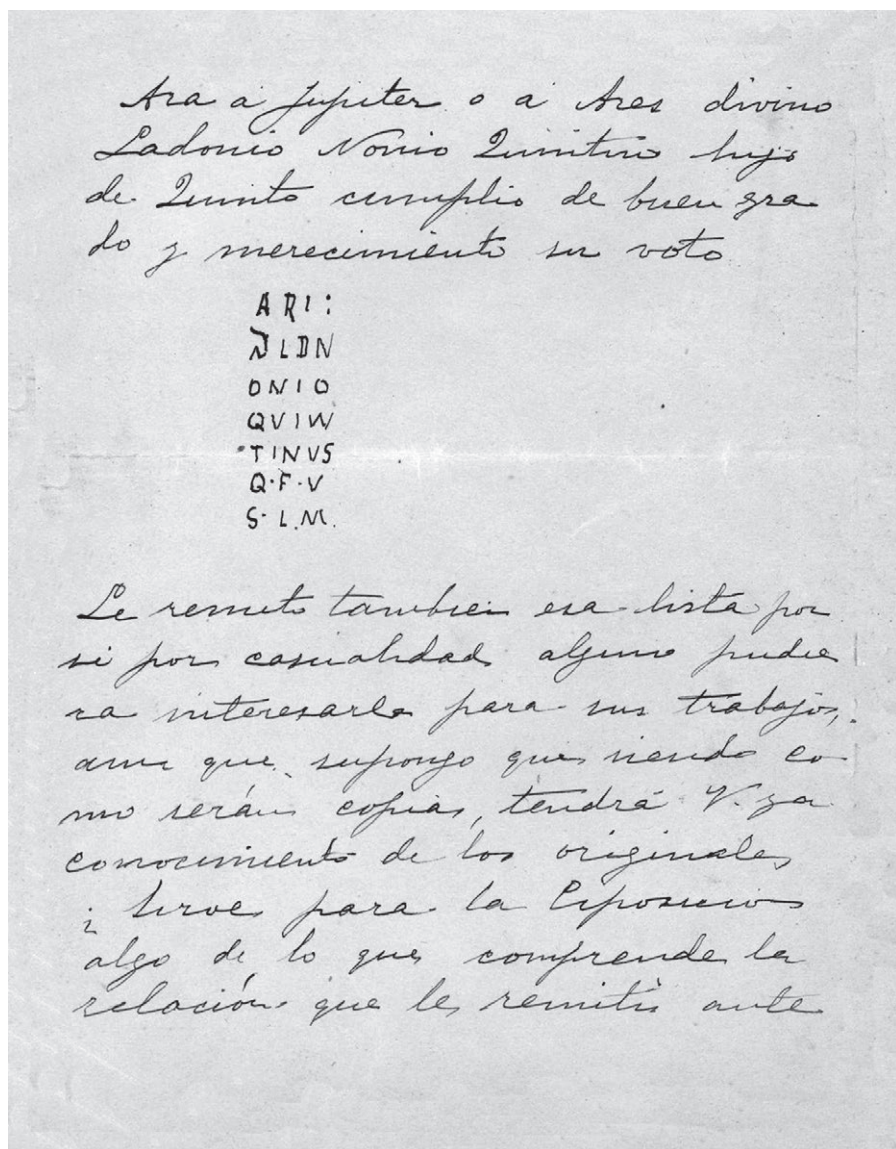 Ara a Jupiter o a Ares divino
Ladonio Nonio Quintino hijo
de Quinto cumplio de buen gra
do y merecimiento su voto
ARI:
NLDN
ONIO
QVIW
TINVS
Q·F·V
S·L.M.
Le remito tambien esa lista por
si por casualidad alguno pudie
ra interesarle para sus trabajos,
aun que supongo que siendo co
mo serán copias, tendrá V. ya
conocimiento de los originales
¿ Sirve para la Exposicion
algo de lo que comprende la
relación que le remitió ante